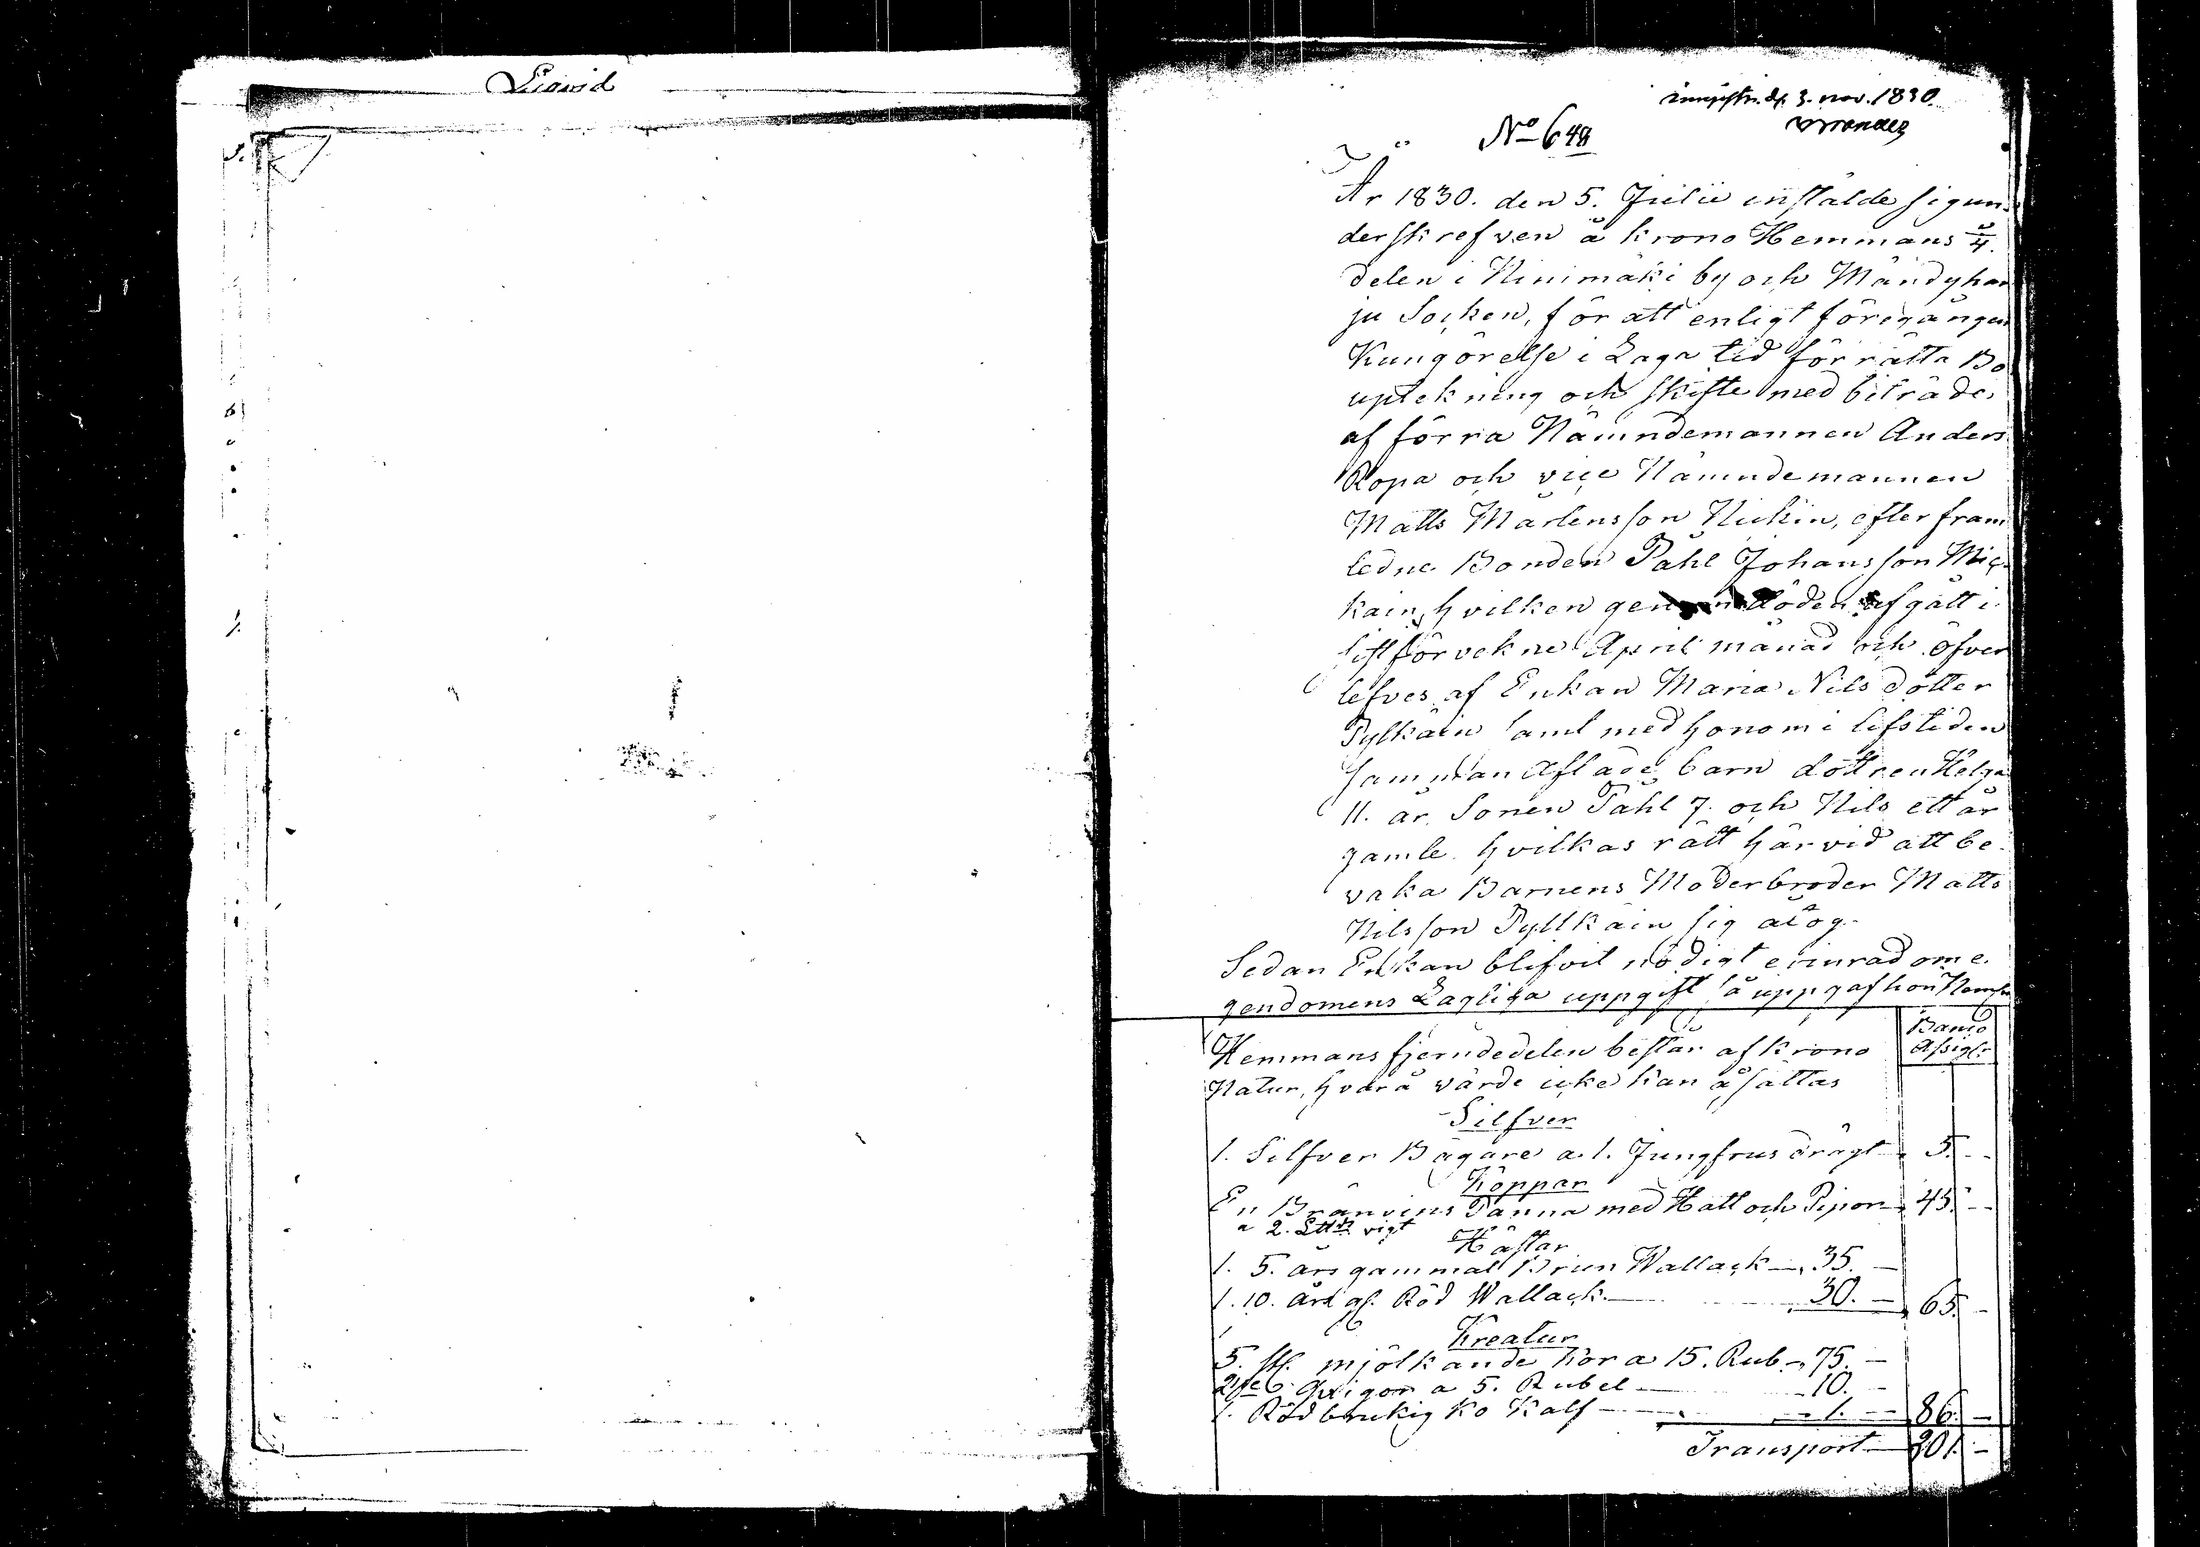 den 3. nov. 1830.
No 648
År 1830. den 5. Julii instälde sig un-
derskrefven å krono Hemmans 1/4.
delen i Ninimäki by och Mändyhar
ju Socken, för att enligt föregången
Kungörelse i Laga tid förrätta Bo
uptekning och skifte med biträde
af förra Nämndemannen Anders
Ropa och vice Nämndemannen
Matts Mårtensson Nickin, efter fram
ledne Bonden Påhl Johansson Mic-
kain, hvilken genom döden afgått i
sistförvekne April månad och öfver
lefves af Enkan Maria Nils dotter
Pylkäin samt med honom i lifstiden
samman aflade barn dottren Helga
11. år Sonen Påhl 7. och Nils ett år
gamle hvilkas rätt härvid att be-
vaka Barnens Moderbroder Matts
Nilsson Pyllkäin sig åtog.
Sedan Enkan blifvit nödigt erinrad om e-
gendomens Lagliga uppgift så uppgaf hon Neml.
Banco
Assigr
Hemmans fjerndedelen består af krono
Natur, hvarå värde icke kan åsättas
Silfver
1. Silfver Bägare a 1. Jungfrus drägt 5. -
Koppar
En Bränvins Panna med Hatt och Pipor 45. -
a 2. Lttb vigt
Hästar
1. 5. års gammal Brun Wallack 35. -
1. 10. års gl. Röd Wallack 30. - 65. -
Kreatur
5. st. mjölkande kor a 15. Rub. 75. -
2ne Qvigor a 5. Rubel 10. -
1. Röd brukig Ko Kalf 1. - 86. -
Transport 201. -